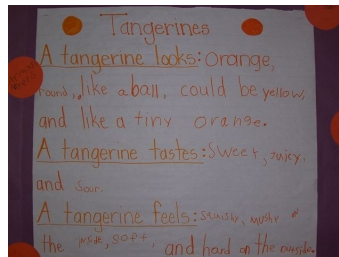 Tangerines
A tangerine looks: Orange,
round, like a ball, could be yellow,
and like a tiny orange.
A tangerine tastes: Sweet, juicy,
and sour.
A tangerine feels: squishy, mushy
the inside, soft, and hard on the outside.